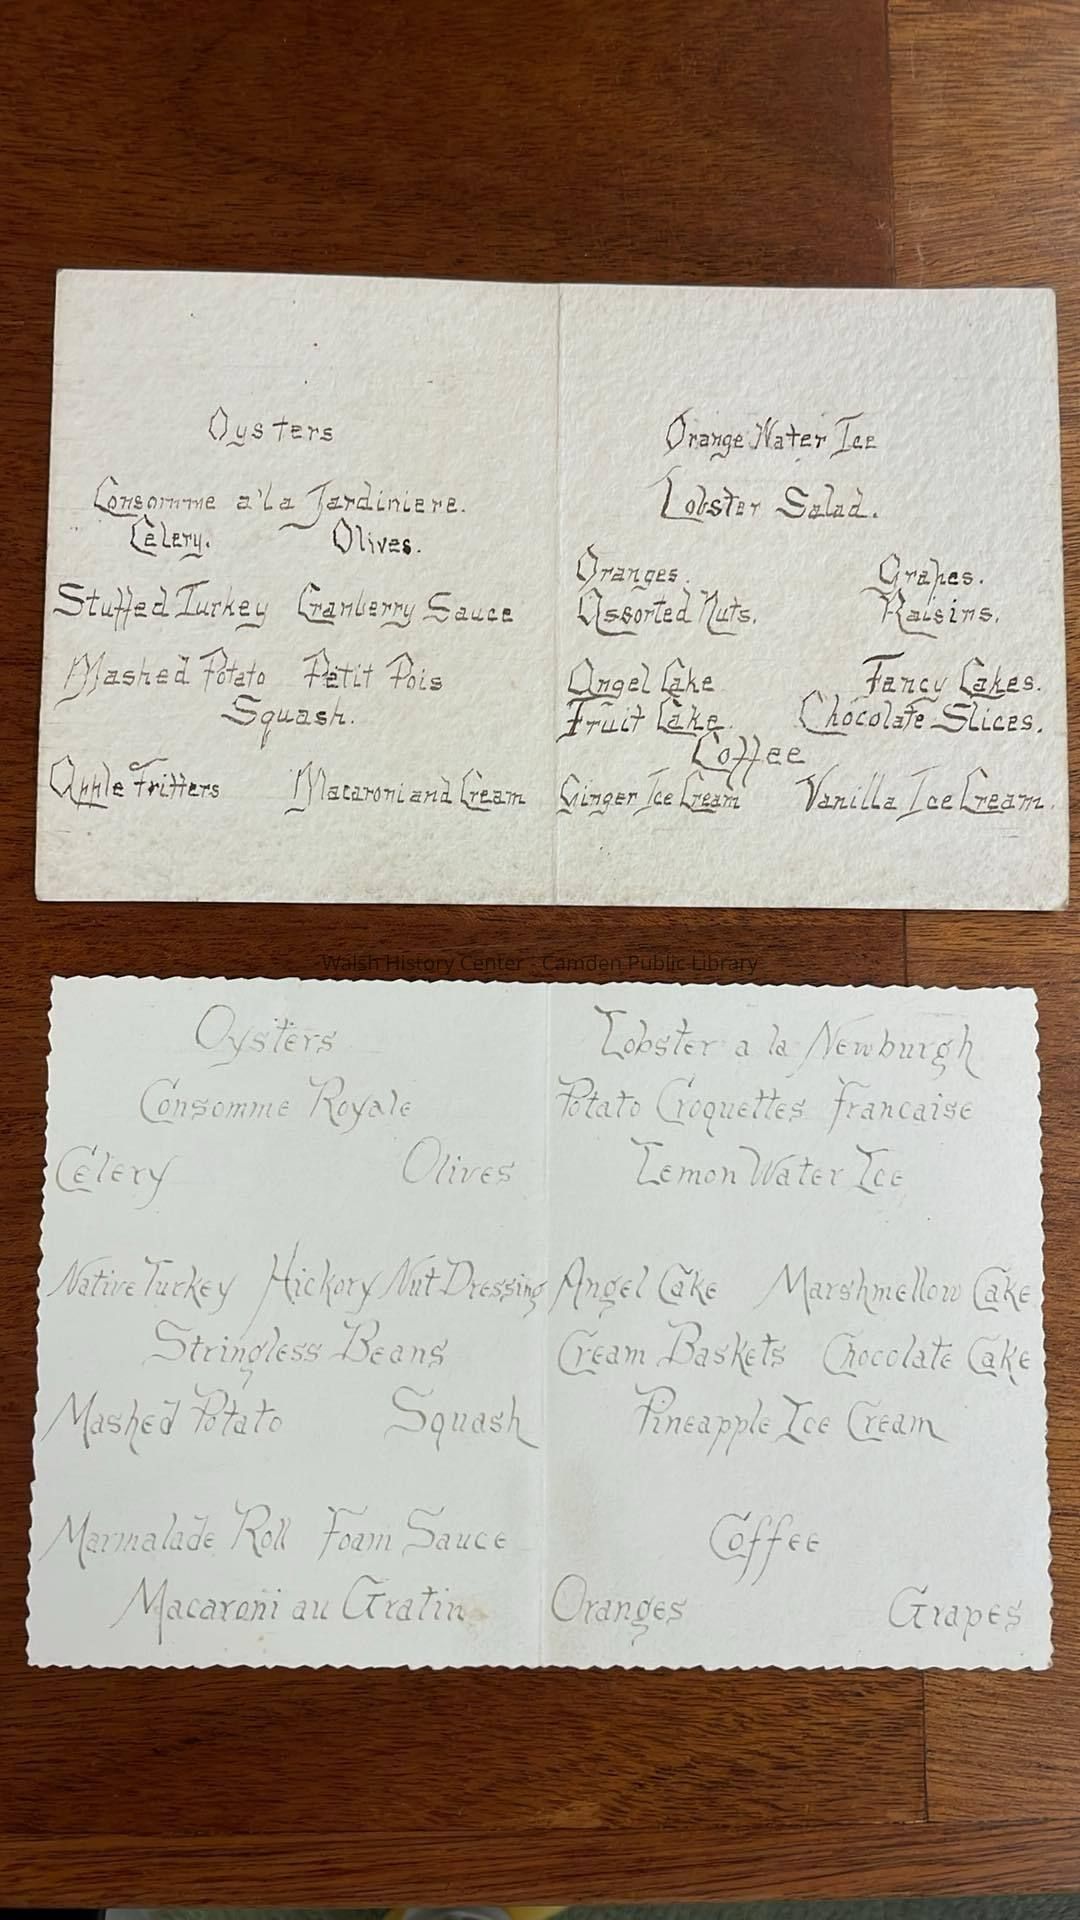 Oysters
Consomme a'la Jardiniere.
Celery. Olives.
Stuffed Turkey Cranberry Sauce
Mashed Potato Petit Pois
Squash.
Apple Fritters Macaroni and Cream
Orange Water Ice
Lobster Salad.
Oranges. Grapes.
Assorted Nuts. Raisins.
Angel Cake Fancy Cakes.
Fruit Cake. Chocolate Slices.
Coffee
Ginger Ice Cream Vanilla Ice Cream.
Walsh History Center - Camden Public Library
Oysters
Consomme Royale
Celery Olives
Native Turkey Hickory Nut Dressing
Stringless Beans
Mashed Potato Squash
Marmalade Roll Foam Sauce
Macaroni au Gratin
Lobster a la Newburgh
Potato Croquettes Francaise
Lemon Water Ice
Angel Cake Marshmellow Cake
Cream Baskets Chocolate Cake
Pineapple Ice Cream
Coffee
Oranges Grapes